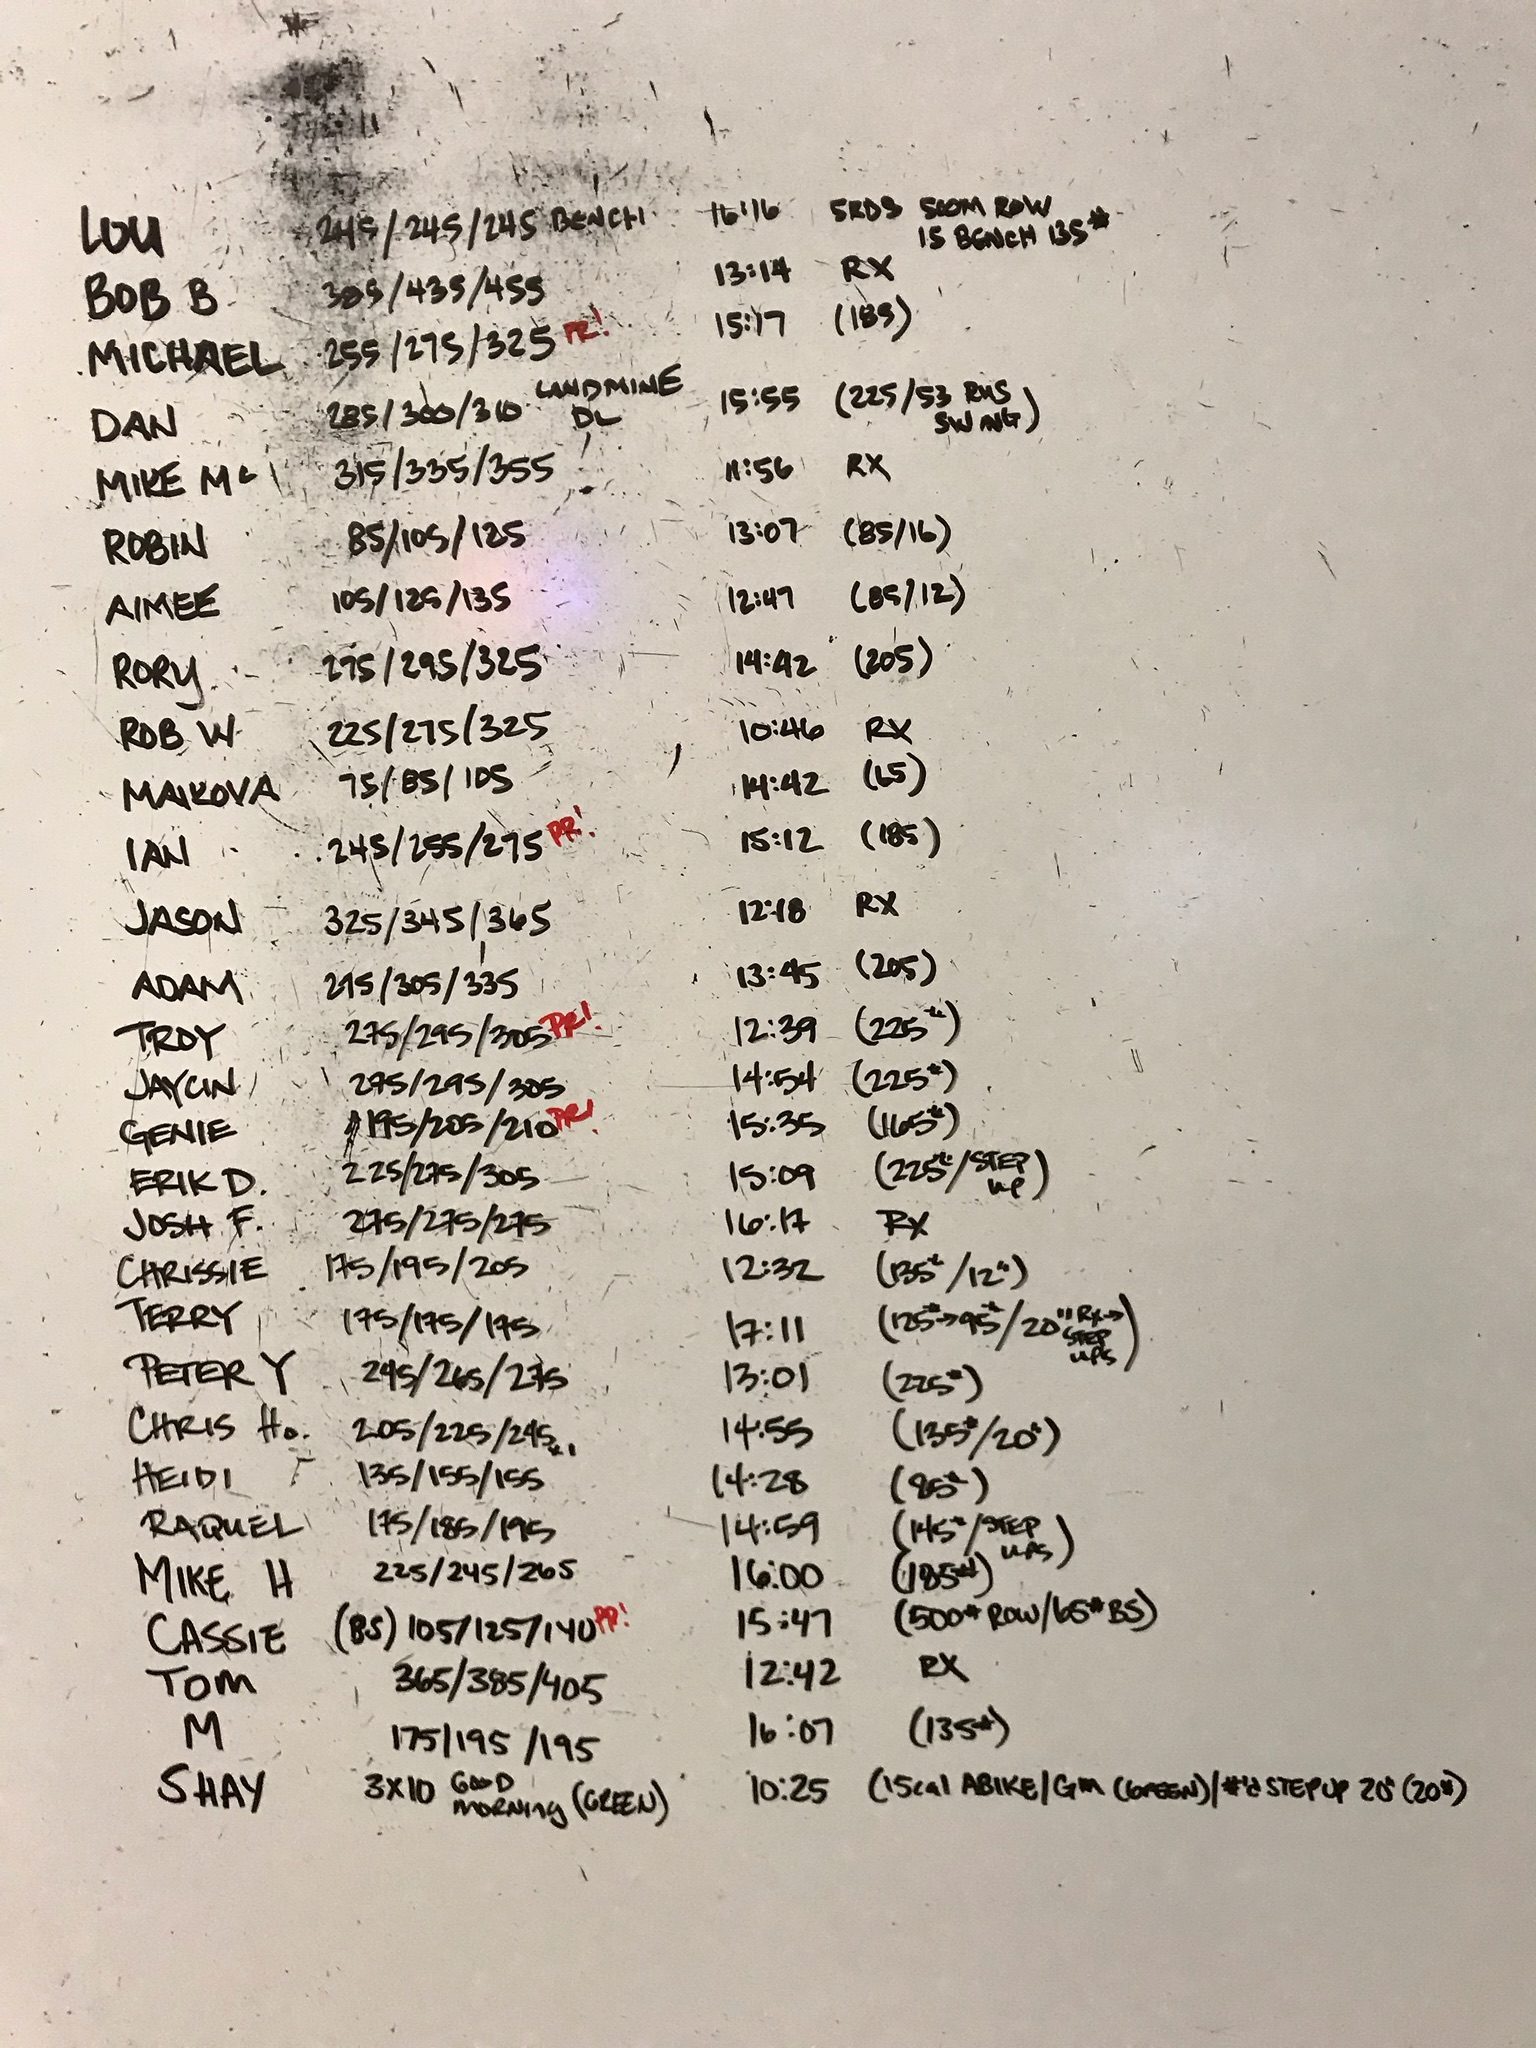 LOU 245/245/245 BENCH 16:16 5RDS 500M ROW
15 BENCH 135#
BOB B 385/435/455 13:14 RX
MICHAEL 255/275/325 PR! 15:17 (185)
DAN 285/300/310 LANDMINE DL 15:55 (225/53 RUS SWING)
MIKE Mc 315/335/355 11:56 RX
ROBIN 85/105/125 13:07 (85/16)
AIMEE 105/125/135 12:47 (85/12)
RORY 275/295/325 14:42 (205)
ROB W 225/275/325 10:46 RX
MAIKOVA 75/85/105 14:42 (65)
IAN 245/255/275 PR! 15:12 (185)
JASON 325/345/365 12:18 RX
ADAM 295/305/335 13:45 (205)
TROY 275/295/305 PR! 12:39 (225#)
JAYCIN 275/295/305 14:54 (225#)
GENIE 195/205/210 PR! 15:35 (165#)
ERIK D. 225/275/305 15:09 (225#/STEP UP)
JOSH F. 275/275/275 16:17 RX
CHRISSIE 175/195/205 12:32 (135#/12")
TERRY 175/175/175 17:11 (125#→95#/20" RX→ STEP UPS)
PETER Y 245/265/275 13:01 (225#)
CHRIS Ho. 205/225/245 14:55 (135#/20")
HEIDI 135/155/155 14:28 (85#)
RAQUEL 175/185/195 14:59 (145#/STEP UPS)
MIKE H 225/245/265 16:00 (185#)
CASSIE (BS) 105/125/140 PR! 15:47 (500# ROW/65# BS)
TOM 365/385/405 12:42 RX
M 175/195/195 16:07 (135#)
SHAY 3X10 GOOD MORNING (GREEN) 10:25 (15cal ABIKE/GM (GREEN)/#'d STEP UP 20" (20#)